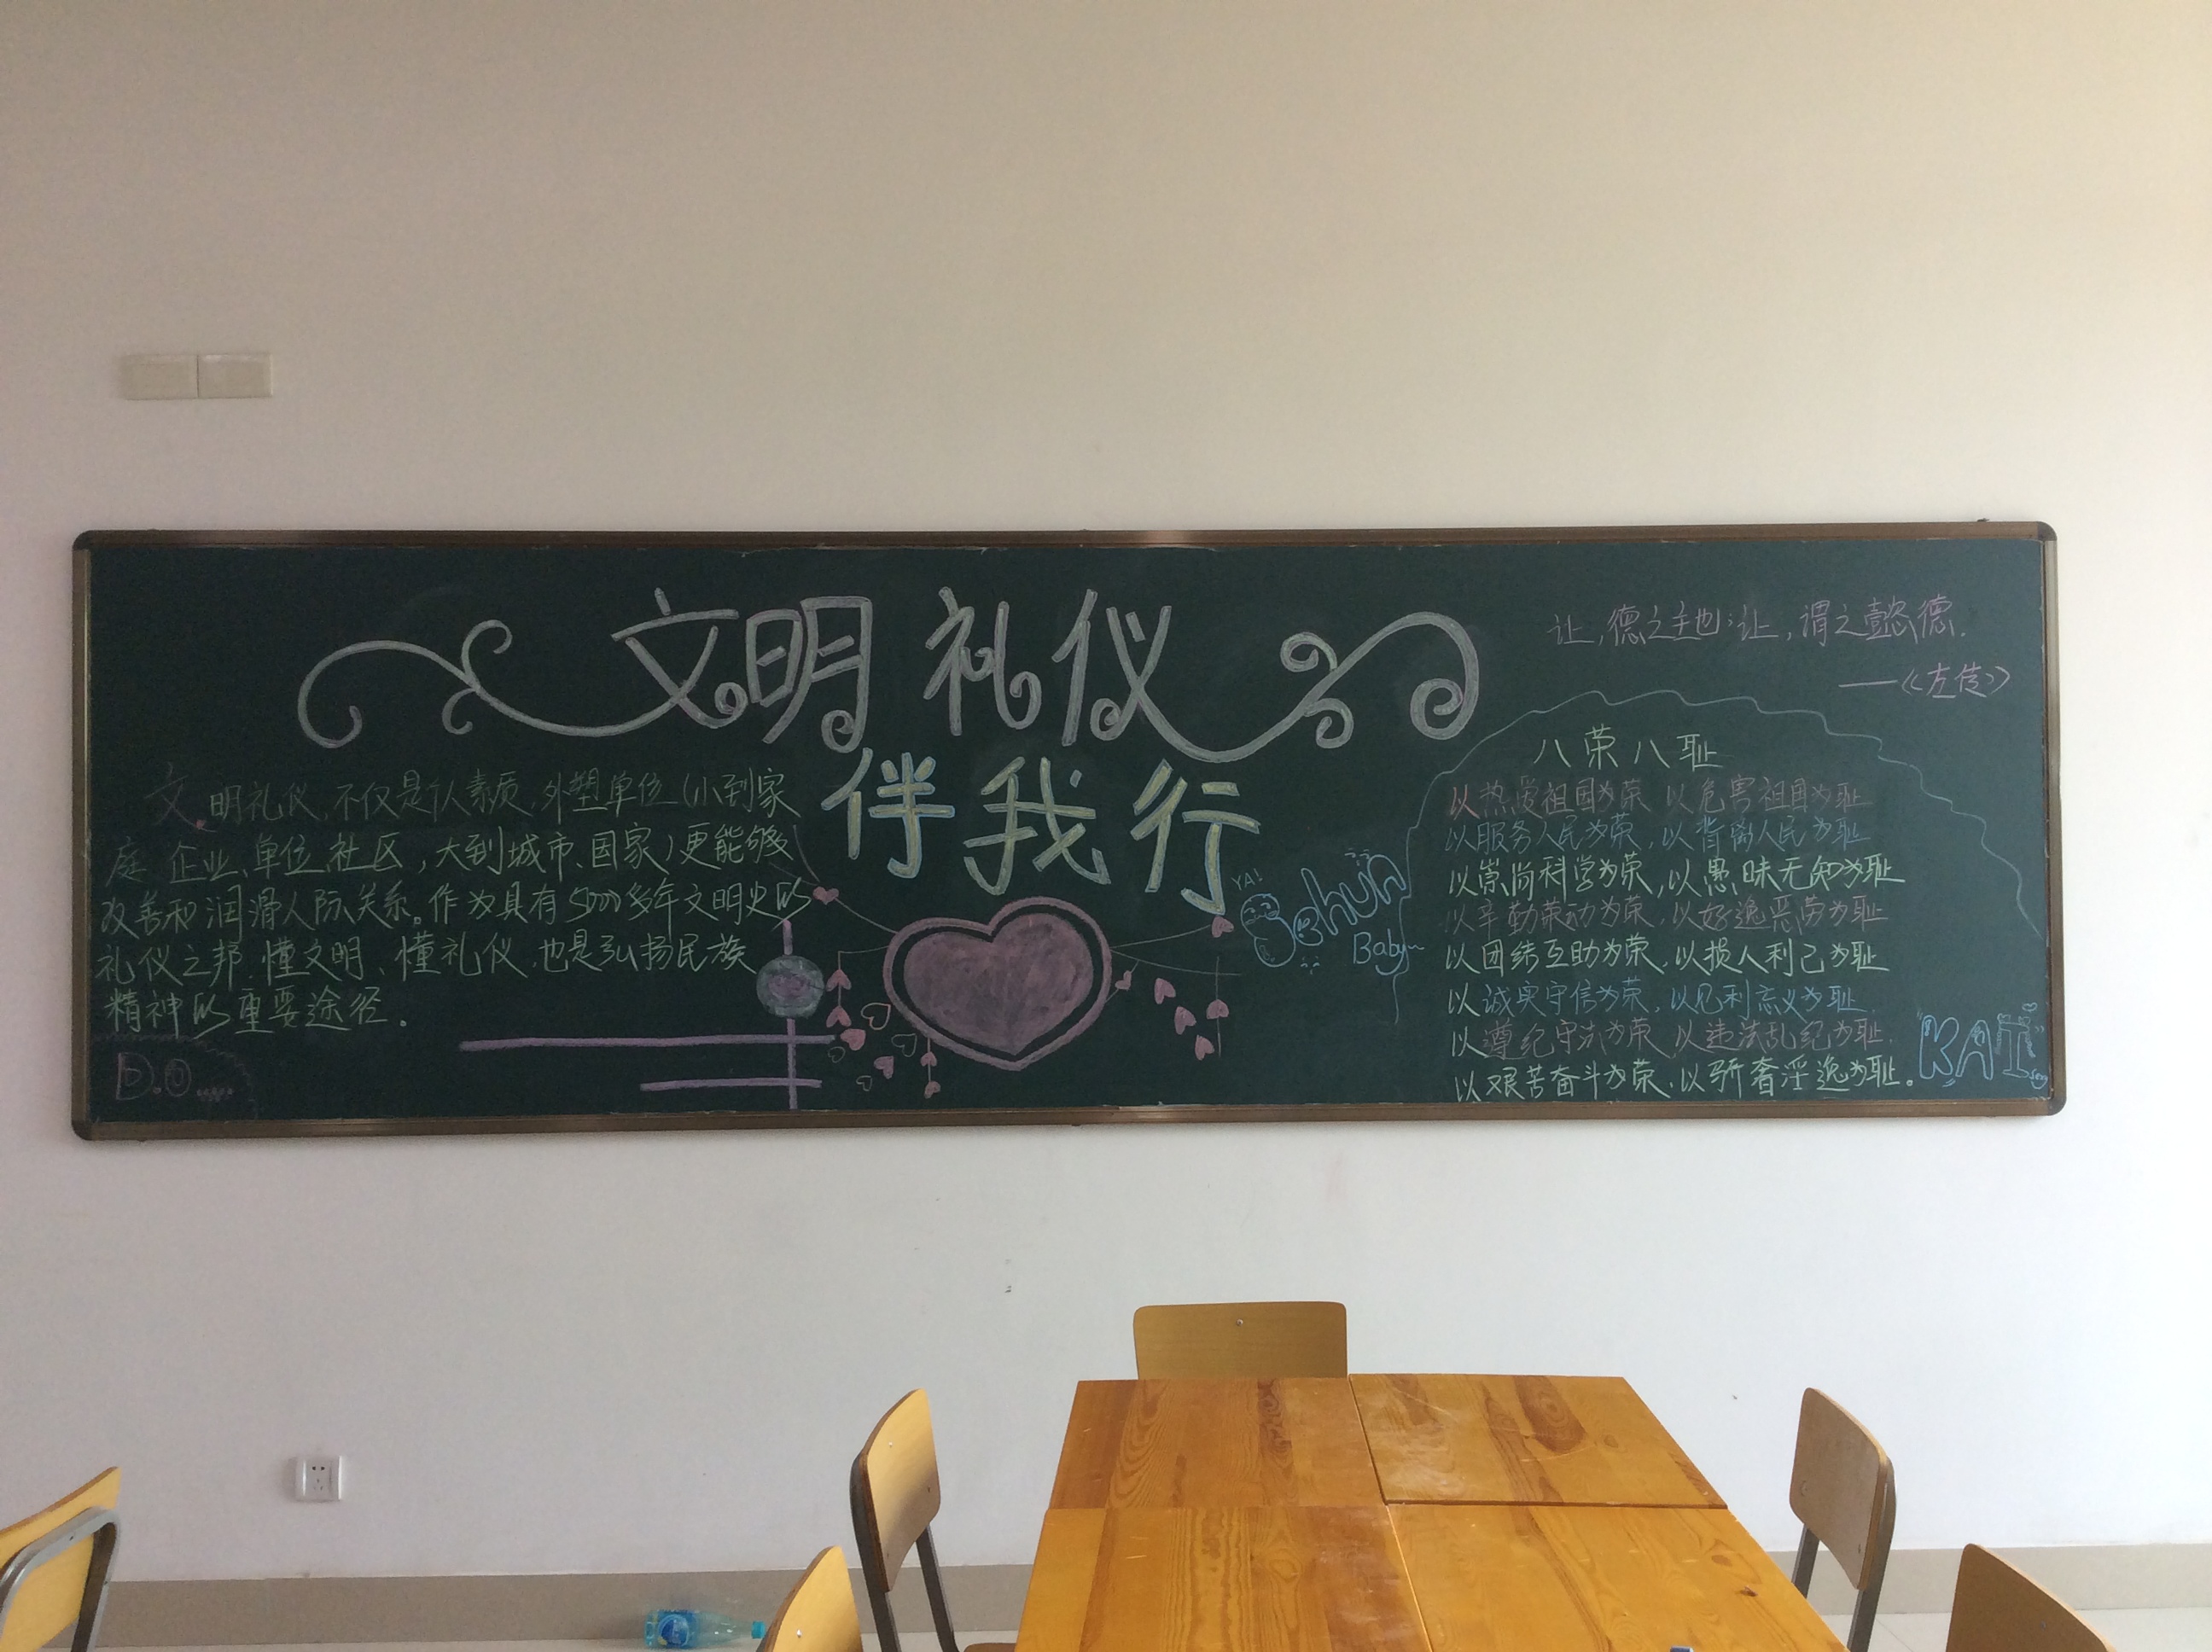 文明礼仪
伴我行
文明礼仪,不仅是个人素质,外塑单位(小到家
庭、企业、单位、社区,大到城市、国家)更能够
改善和润滑人际关系。作为具有5000多年文明史的
礼仪之邦,懂文明、懂礼仪,也是弘扬民族
精神的重要途径。
D.O......
YA!
Sehun
Baby~
让,德之主也;让,谓之懿德.
——《左传》
八荣八耻
以热爱祖国为荣 以危害祖国为耻
以服务人民为荣,以背离人民为耻
以崇尚科学为荣,以愚昧无知为耻
以辛勤劳动为荣,以好逸恶劳为耻
以团结互助为荣,以损人利己为耻
以诚实守信为荣,以见利忘义为耻.
以遵纪守法为荣 以违法乱纪为耻.
以艰苦奋斗为荣,以骄奢淫逸为耻。
"KAI"